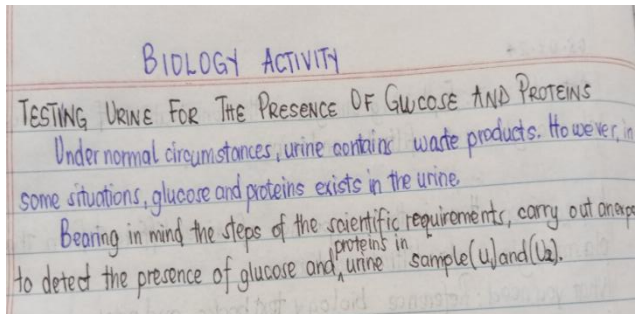 BIOLOGY ACTIVITY
TESTING URINE FOR THE PRESENCE OF GLUCOSE AND PROTEINS
Under normal circumstances, urine contains waste products. However, in
some situations, glucose and proteins exists in the urine.
Bearing in mind the steps of the scientific requirements, carry out an expe
to detect the presence of glucose and proteins in urine sample (U₁) and (U₂).